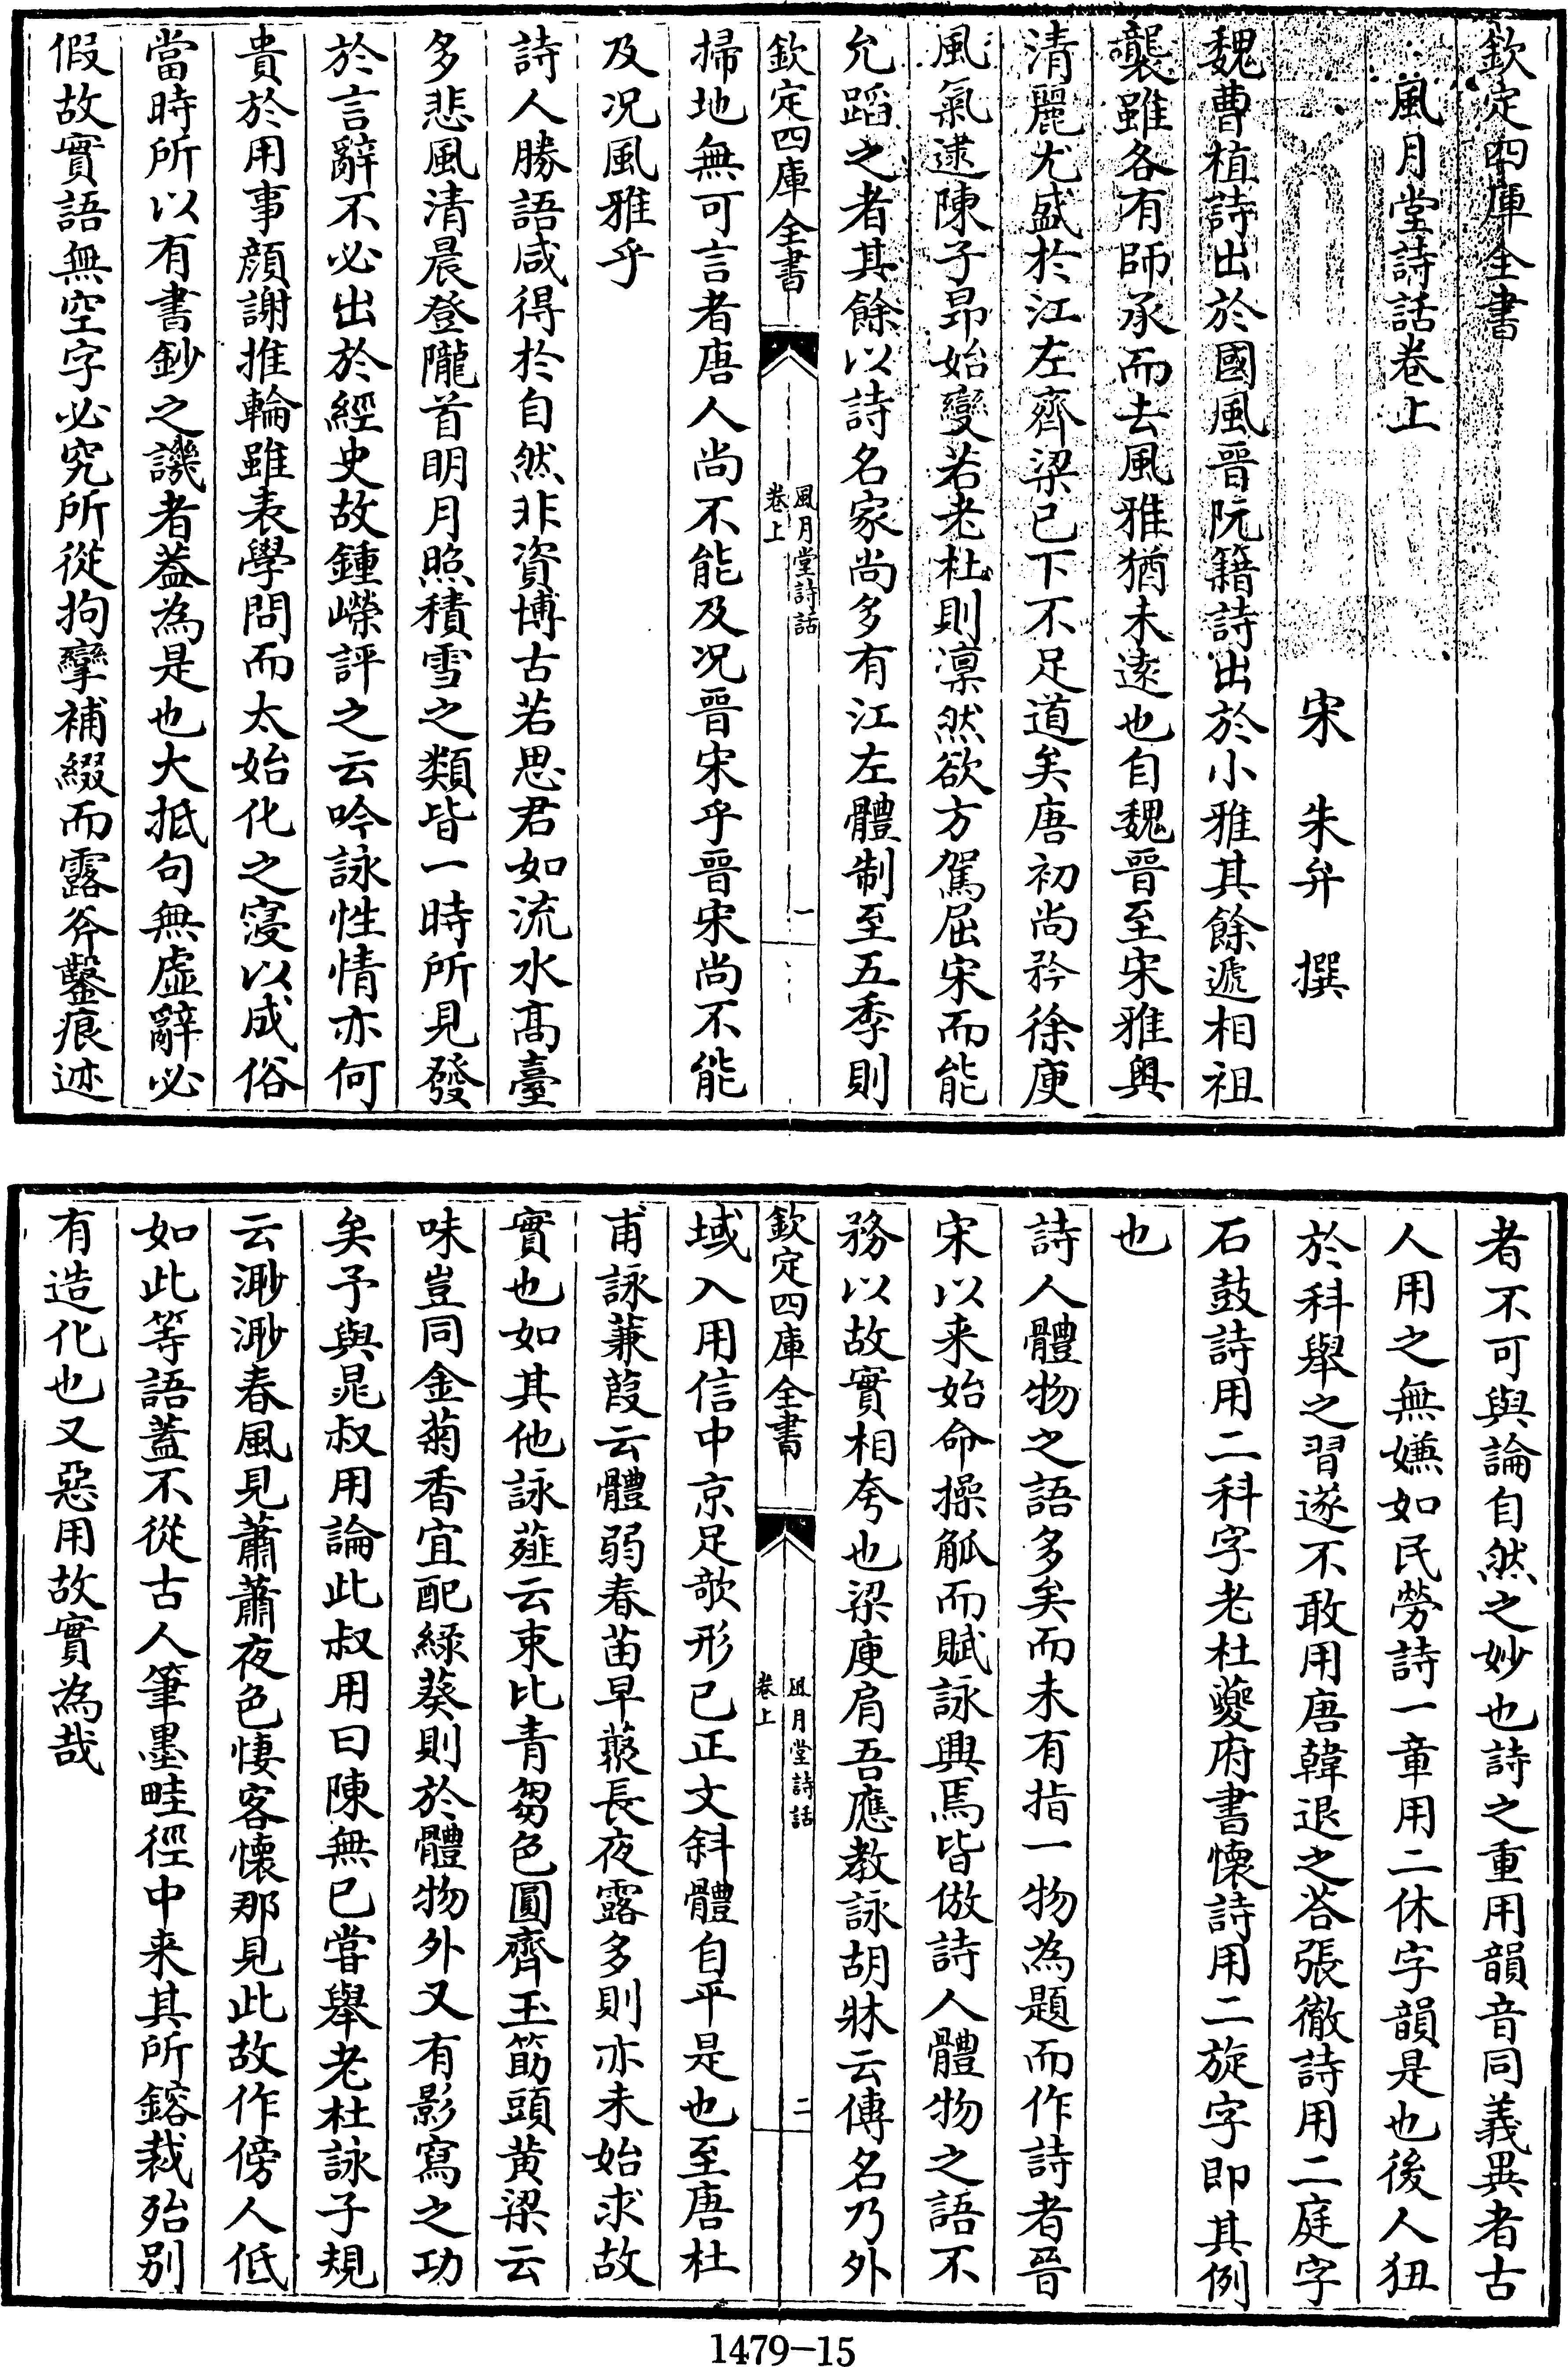 欽定四庫全書
風月堂詩話卷上
宋　朱弁　撰
魏曹植詩出於國風晉阮籍詩出於小雅其餘遞相祖
襲雖各有師承而去風雅猶未遠也自魏晉至宋雅奧
清麗尤盛於江左齊梁已下不足道矣唐初尚矜徐庾
風氣逮陳子昻始變若老杜則凛然欲方駕屈宋而能
允蹈之者其餘以詩名家尚多有江左體制至五季則
欽定四庫全書
風月堂詩話
卷上
一
掃地無可言者唐人尚不能及况晉宋乎晉宋尚不能
及况風雅乎
詩人勝語咸得於自然非資博古若思君如流水髙臺
多悲風清晨登隴首明月照積雪之類皆一時所見發
於言辭不必出於經史故鍾嶸評之云吟詠性情亦何
貴於用事顔謝推輪雖表學問而太始化之寖以成俗
當時所以有書鈔之譏者葢為是也大抵句無虛辭必
假故實語無空字必究所從拘攣補綴而露斧鑿痕迹
者不可與論自然之妙也詩之重用韻音同義異者古
人用之無嫌如民勞詩一章用二休字韻是也後人狃
於科舉之習遂不敢用唐韓退之荅張徹詩用二庭字
石鼓詩用二科字老杜夔府書懷詩用二旋字即其例
也
詩人體物之語多矣而未有指一物為題而作詩者晉
宋以来始命操觚而賦詠興焉皆倣詩人體物之語不
務以故實相夸也梁庾肩吾應教詠胡牀云傳名乃外
欽定四庫全書
風月堂詩話
卷上
二
域入用信中京足欹形已正文斜體自平是也至唐杜
甫詠蒹葭云體弱春苗早藂長夜露多則亦未始求故
實也如其他詠薤云束比青芻色圓齊玉筯頭黄梁云
味豈同金菊香宜配緑葵則於體物外又有影寫之功
矣予與晁叔用論此叔用曰陳無已嘗舉老杜詠子規
云渺渺春風見蕭蕭夜色悽客懐那見此故作傍人低
如此等語蓋不從古人筆墨畦徑中来其所鎔裁殆别
有造化也又惡用故實為哉
1479-15